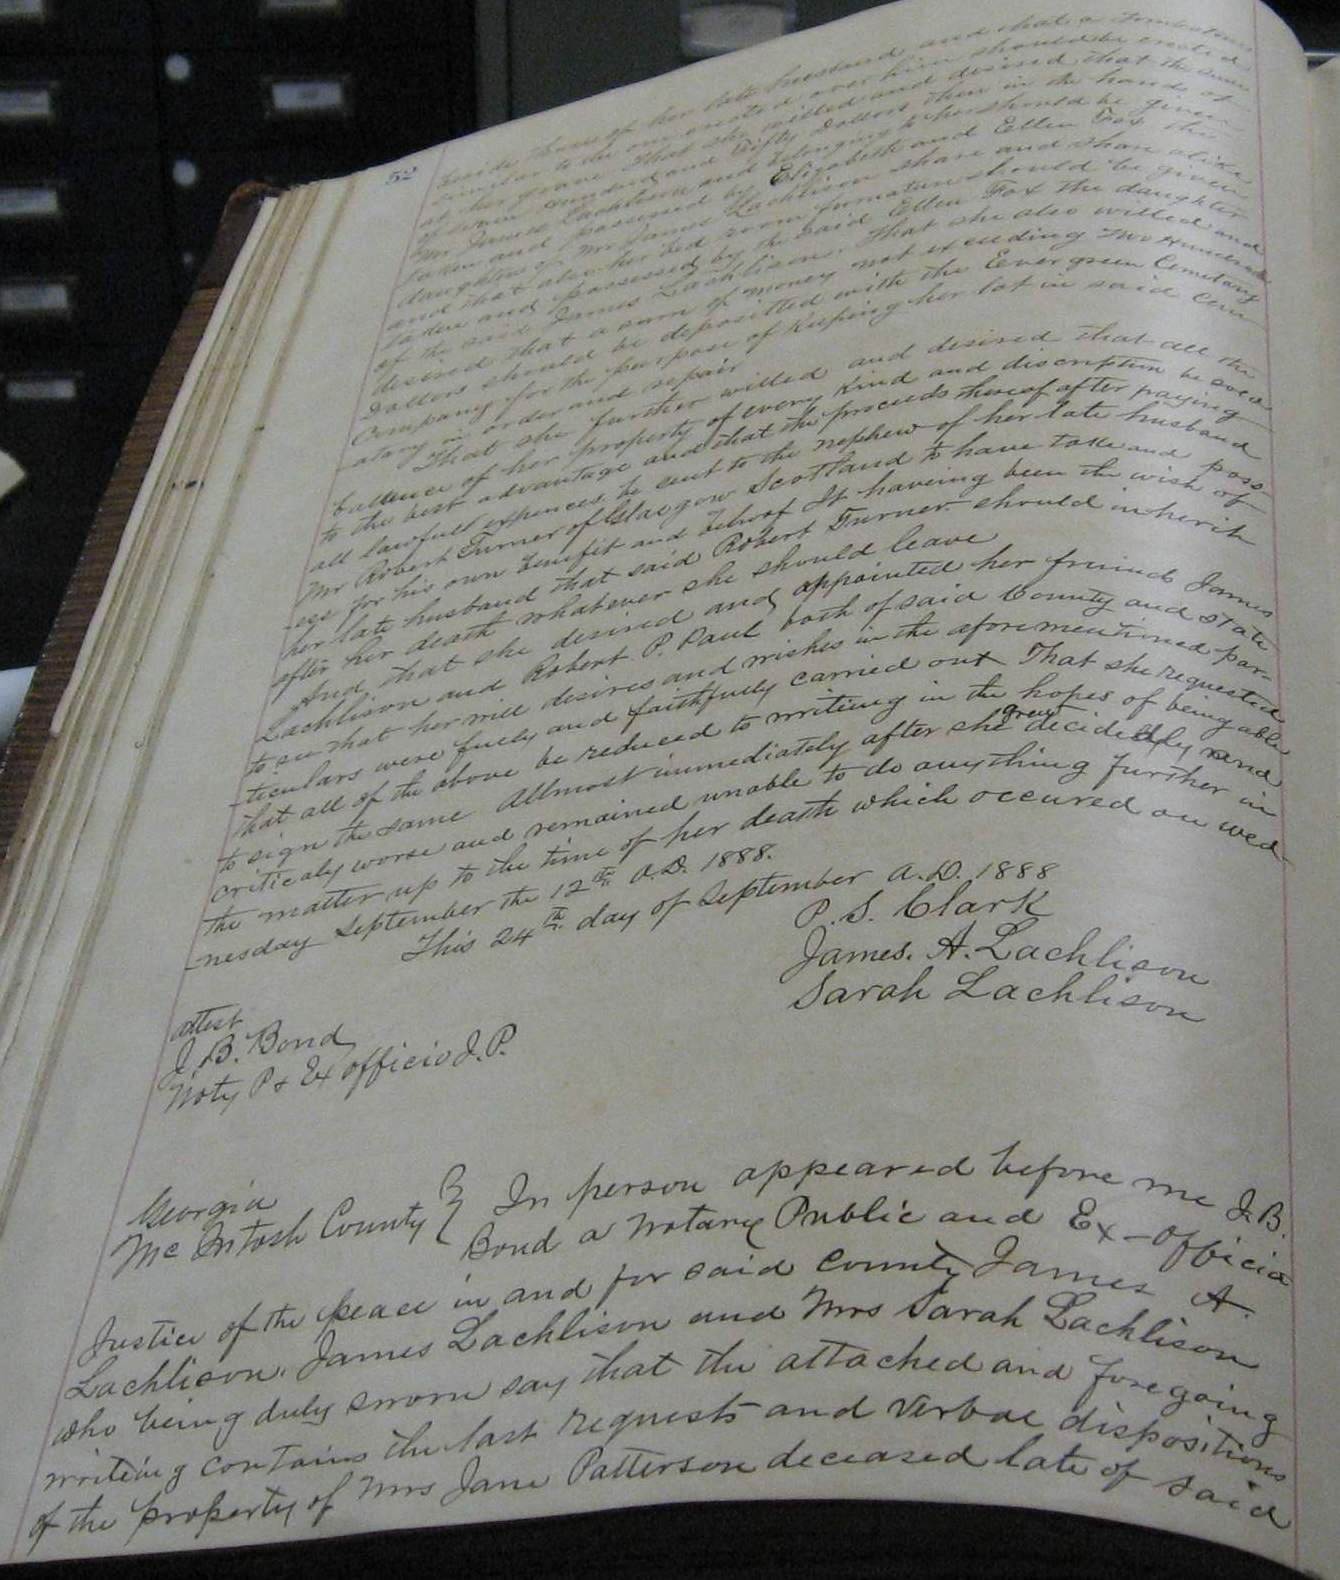 52
beside those of her late husband and that a Tombstone
similar to the one erected over him should be erected
at her grave That she willed and desired that the sum
of Seven Hundred and Fifty Dollars then in the hands of
Mr James Lachlison and belonging to her should be given
taken and possessed by Elizabeth and Ellen Fox the
daughters of Mr James Lachlison share and share alike
and that also her bed room furniture should be given
taken and possessed by the said Ellen Fox the daughter
of the said James Lachlison. That she also willed and
desired that a sum of money not exceeding Two Hundred
Dollars should be depositted with the Evergreen Cemetary
Company for the purpose of Keeping her lot in said Cem-
-atary in order and repair
That she further willed and desired that all the
ballance of her property of every Kind and discription be sold
to the best advantage and that the proceeds thereof after paying
all lawfull expences be sent to the nephew of her late husband
Mr Robert Turner of Glasgow Scotland to have take and poss-
-ess for his own benefit and behoof It haveing been the wish of
her late husband that said Robert Turner should inherit
after her death whatever she should leave
And, that she desired and appointed her friends James
Lachlison and Robert P. Paul both of said County and State
to see that her will desires and wishes in the aforementioned par-
-ticulars were fully and faithfully carried out That she requested
that all of the above be reduced to writing in the hopes of being able
to sign the same Allmost immediately after she grew decidedly and
criticaly worse and remained unable to do anything further in
the matter up to the time of her death which occured on wed-
-nesday September the 12th A.D. 1888.
This 24th day of September A.D. 1888
P. S. Clark
James. A. Lachlison
Sarah Lachlison
attest
J. B. Bond
Noty P & Ex officio J. P.
Georgia
McIntosh County } In person appeared before me J. B.
Bond a Notary Public and Ex-officio
Justice of the peace in and for said County James A.
Lachlison, James Lachlison and Mrs Sarah Lachlison
who being duly sworn say that the attached and foregoing
writing contains the last requests and verbal dispositions
of the property of Mrs Jane Patterson deceased late of said